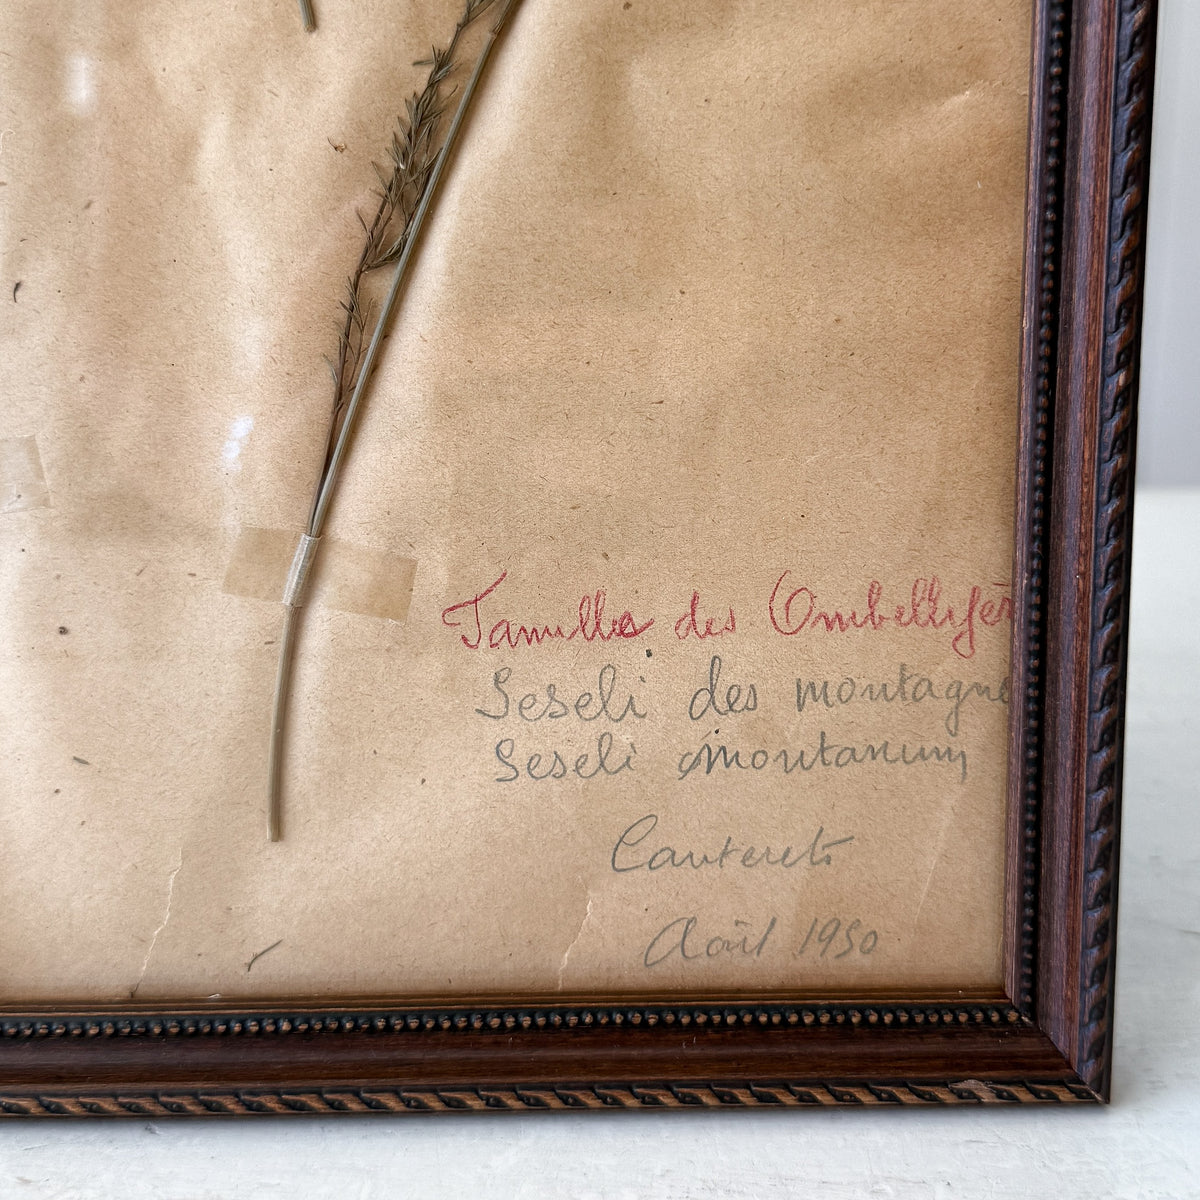 Famille des Ombellifèr
Seseli des montagne
Seseli montanum
Cauterets
Août 1950